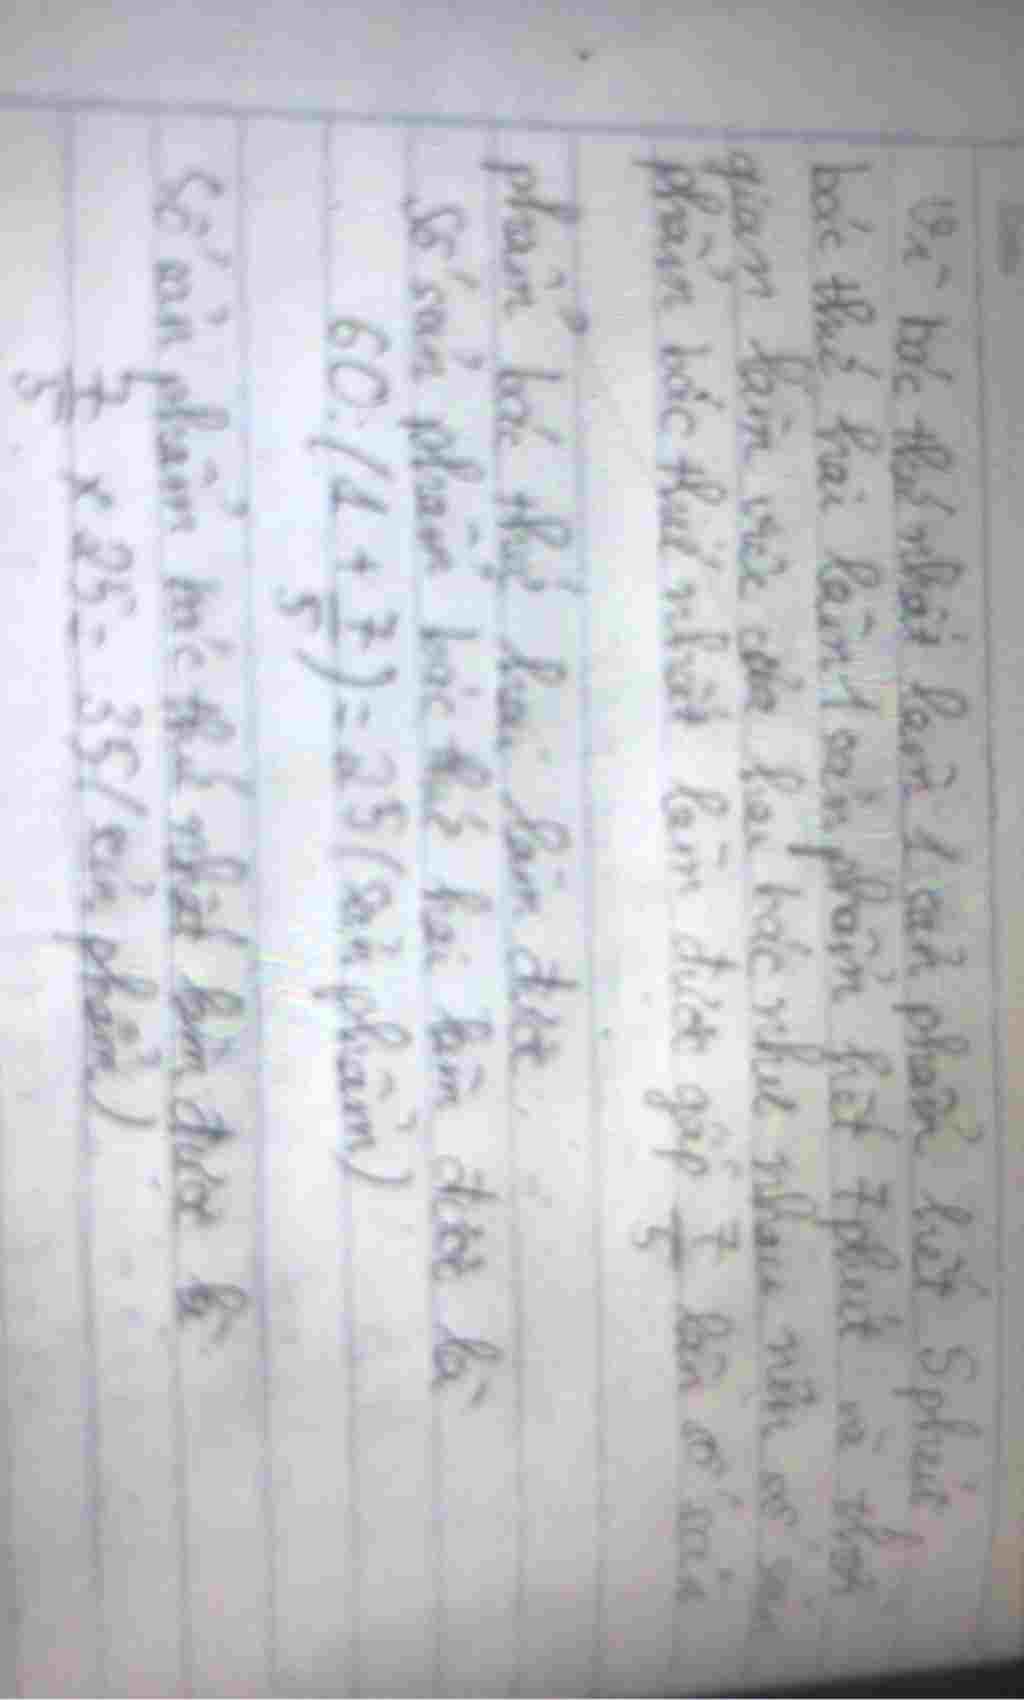 Vì bác thứ nhất làm 1 sản phẩm hết 5 phút,
bác thứ hai làm 1 sản phẩm hết 7 phút và thời
gian làm việc của hai bác như nhau nên số sản
phẩm bác thứ nhất làm được gấp 7/5 lần số sản
phẩm bác thứ hai làm được.
Số sản phẩm bác thứ hai làm được là
60:(1 + 7/5) = 25 (sản phẩm)
Số sản phẩm bác thứ nhất làm được là
7/5 x 25 = 35 (sản phẩm)